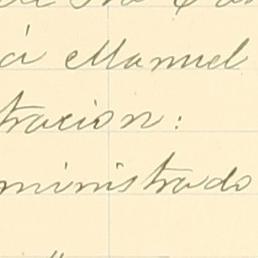 á Manuel
tracion:
ministrado